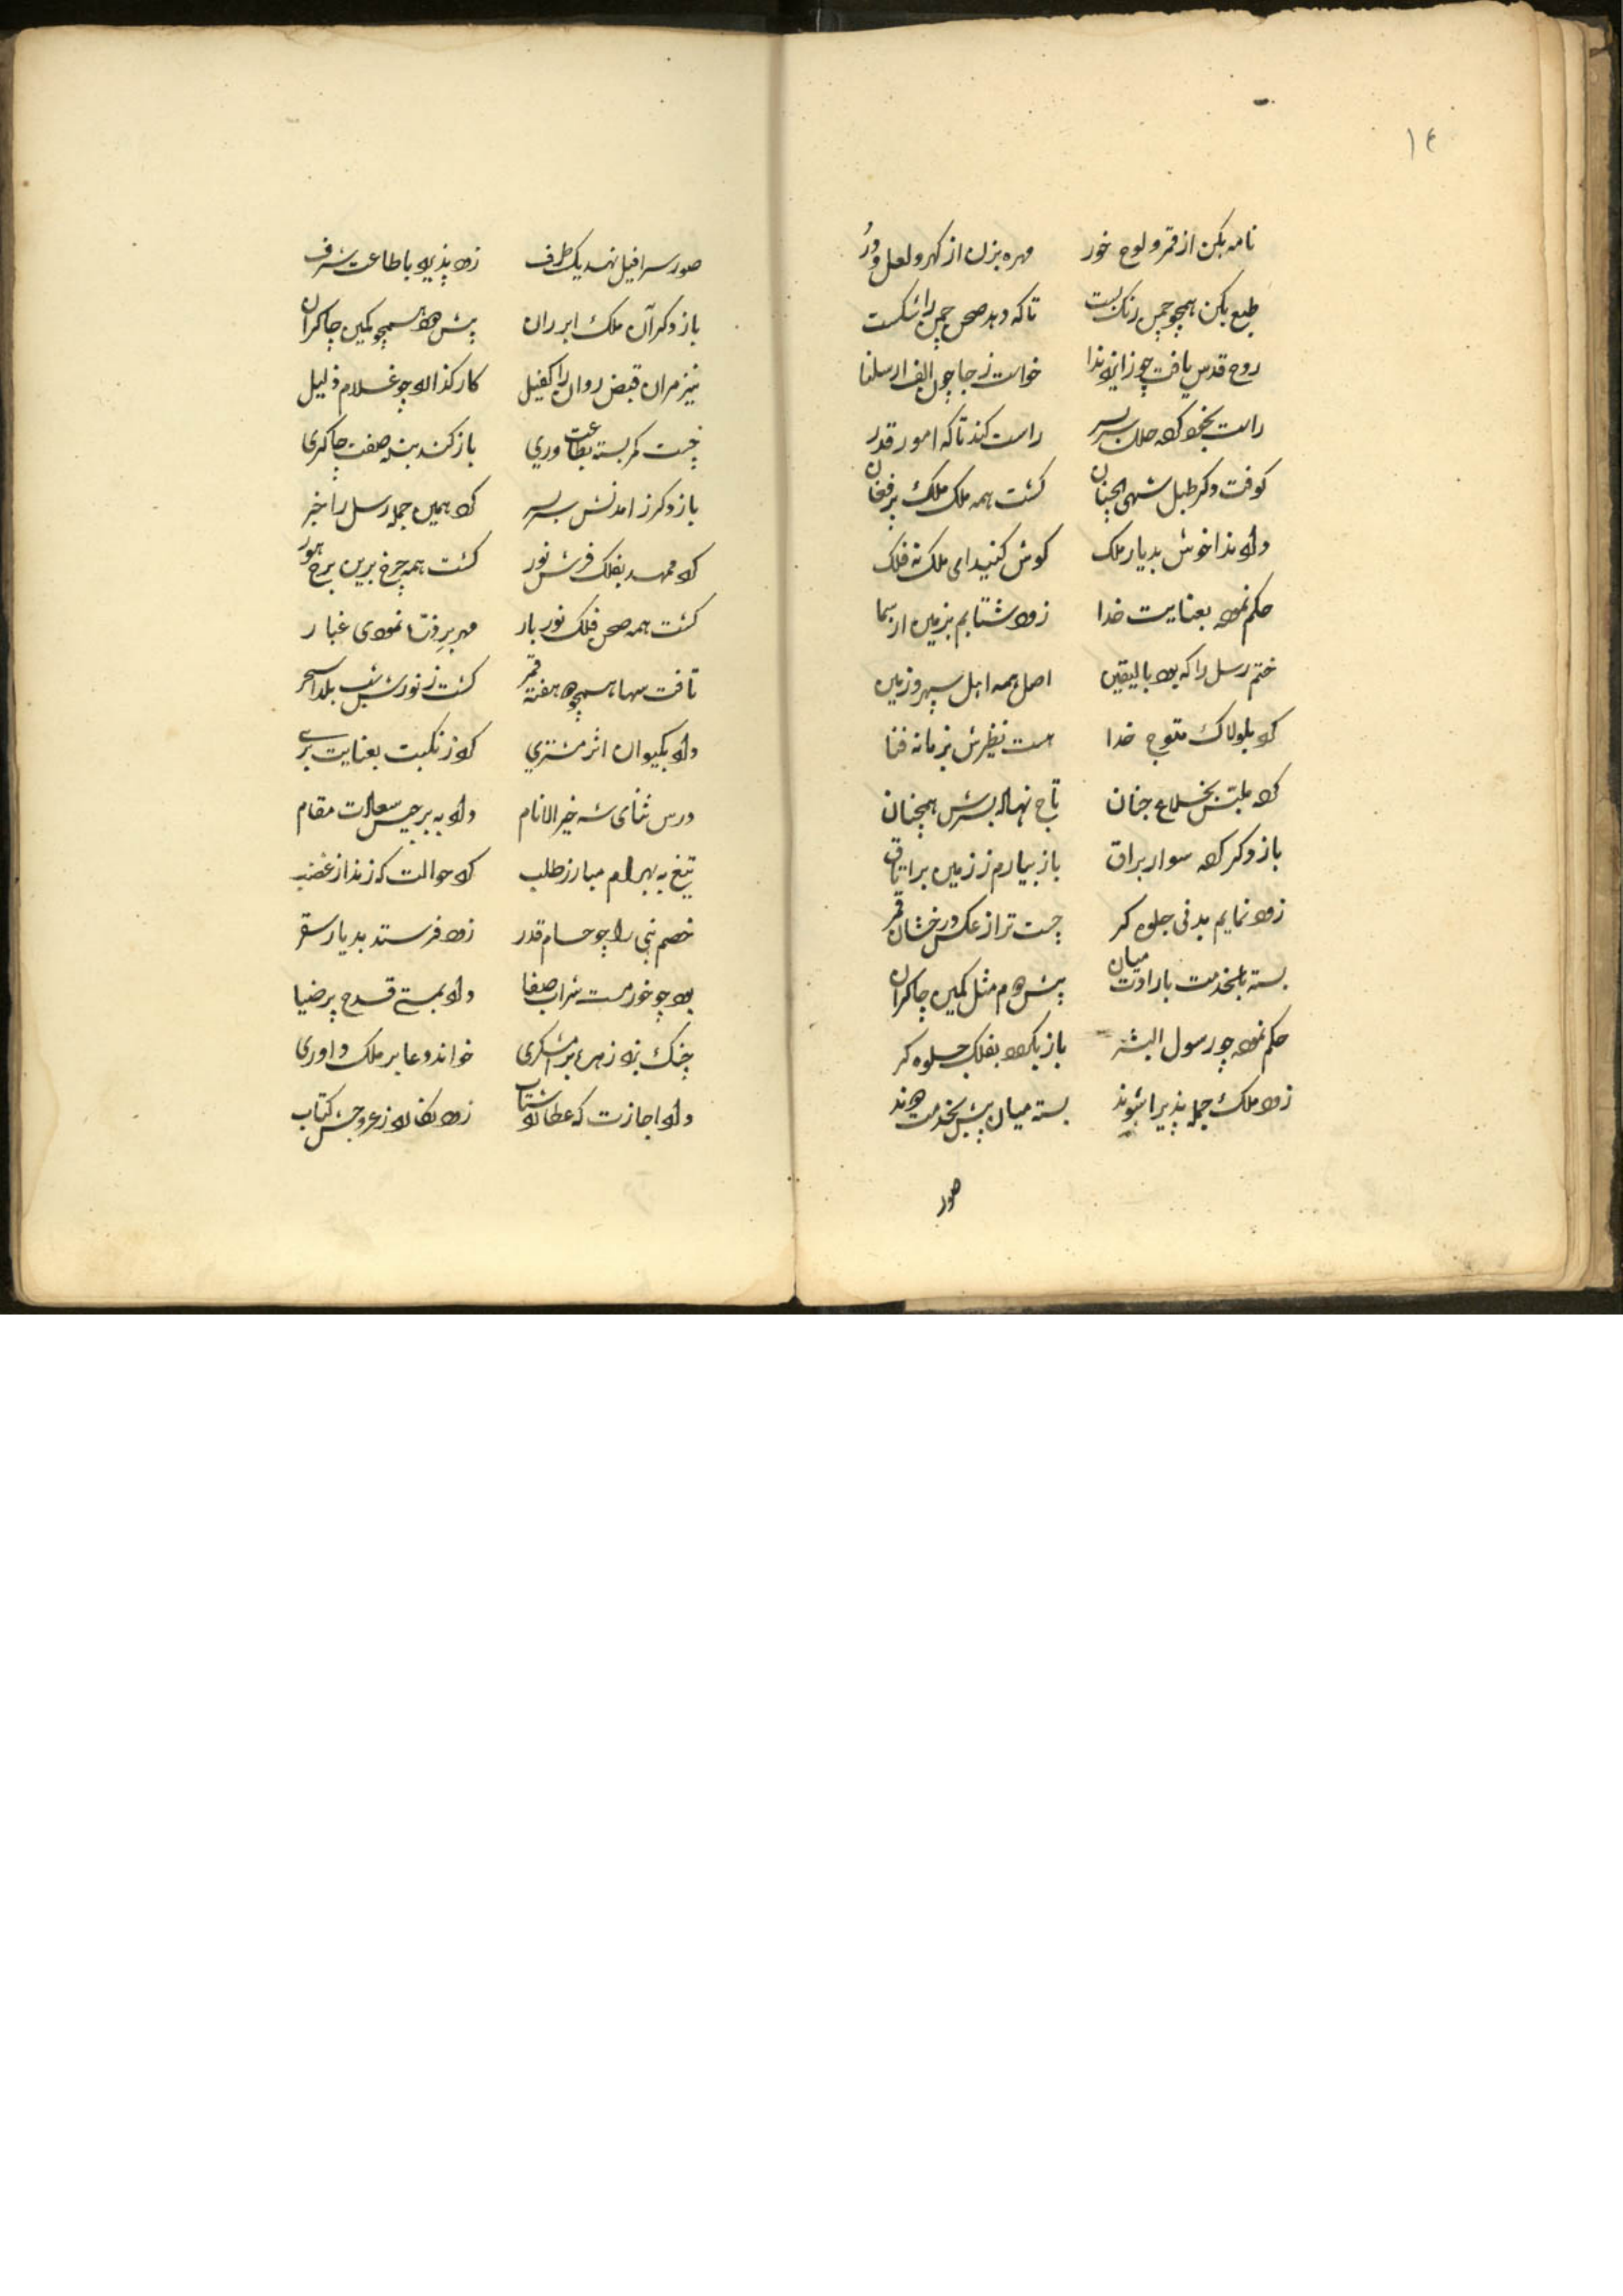 ۱۴
نامه بکن از قمر و لوح خور مهره بزن از کهر و لعل و در
طبع بکن همچو چمن رنک بست تا که دهد صحن چمن را شکست
روح قدس یافت چو زایزد ندا خواست ز جا چون الف ارسلنا
راست بخود کرد سربسر راست کند تا که امور قدر
کوفت دکر طبل شهی کشت همه ملک ملک پر فغان
داد ندا خوش بدیار ملک کوش کنید ای ملک نه فلک
حکم نمود بعنایت خدا زود شتابم بزمین از سما
ختم رسل را که بود بالیقین اصل همه اهل سپهر و زمین
کرد بلولاک متوج خدا هست نظیرش بزمانه فنا
کرد بخلاع جنان تاج نهاد بسرش همچنان
باز دکر کرد سوار براق باز بیارم ز زمین بر
زود نمایم بدنی جلوه کر چست تر از عکس درخشان قمر
بسته بخدمت بارادت میان پیش دوم مثل کمین چاکران
حکم نمود چو رسول البشر باز بکردد بفلک جلوه کر
زود ملک جمله پذیرا شوند بسته میان پیش بخدمت دوند
صور
صور سرافیل نهد یکطرف زود پذیرد باطاعت شرف
باز دکر آن ملک ابر ران پیش دود همچو کمین چاکران
نیز مران قبض روان را کفیل کار کذارد چو غلام ذلیل
چست کمر بسته بطاعت وری باز کند بنده صفت چاکری
باز دکر ز امدنش سربسر کرد همین جمله رسل را خبر
کرد ممهد بفلک فرش نور کشت همه چرخ برین برج هور
کشت همه صحن فلک نور بار مهر برفتا نمودی غبار
تافت سها همچو مه هفته قمر کشت ز نورش شب یلدا سحر
داد بکیوان اثر مشتری کرد ز نکبت بعنایت بری
درس ثنای شه خیر الانام داد به برجیس سعادت مقام
تیغ به بهرام مبارز طلب کرد حوالت که زند از غضب
خصم نبی را چو حسام قدر زود فرستد بدیار سقر
بود چو خور مست شراب صفا داد بمستی قدح پر ضیا
چنک بزد زهره برامشکری خواند دعا بر ملک داوری
داد اجازت که عطارد شتاب زود نکارد ز عروجش کتاب